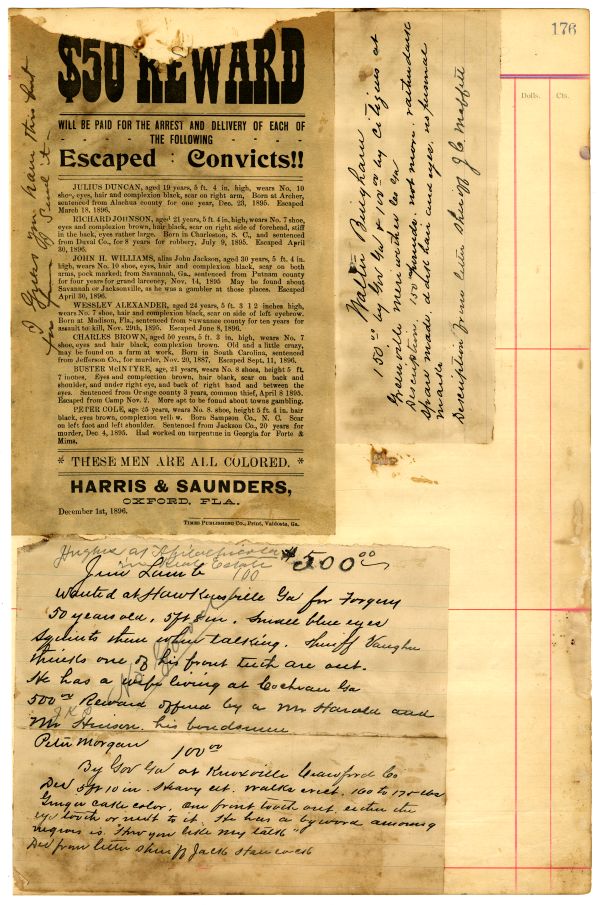 176
Dolls. Cts.
$50 REWARD
WILL BE PAID FOR THE ARREST AND DELIVERY OF EACH OF
- - - - - THE FOLLOWING - - - - -
Escaped : Convicts!!
JULIUS DUNCAN, aged 19 years, 5 ft. 4 in. high, wears No. 10
shoe, eyes, hair and complexion black, scar on right arm, Born at Archer,
sentenced from Alachua county for one year, Dec. 23, 1895. Escaped
March 18, 1896.
RICHARD JOHNSON, aged 21 years, 5 ft. 4 in. high, wears No. 7 shoe,
eyes and complexion brown, hair black, scar on right side of forehead, stiff
in the back, eyes rather large. Born in Charleston, S. C., and sentenced
from Duval Co., for 8 years for robbery, July 9, 1895. Escaped April
30, 1896.
JOHN H. WILLIAMS, alias John Jackson, aged 30 years, 5 ft. 4 in.
high, wears No. 10 shoe, eyes, hair and complexion black, scar on both
arms, pock marked; from Savannah, Ga., sentenced from Putnam county
for four years for grand larceny, Nov. 14, 1895 May be found about
Savannah or Jacksonville, as he was a gambler at those places. Escaped
April 30, 1896.
WESSLEY ALEXANDER, aged 24 years, 5 ft. 3 1 2 inches high,
wears No. 7 shoe, hair and complexion black, scar on side of left eyebrow.
Born at Madison, Fla., sentenced from Suwannee county for ten years for
assault to kill, Nov. 29th, 1895. Escaped June 8, 1896.
CHARLES BROWN, aged 50 years, 5 ft. 3 in. high, wears No. 7
shoe, eyes and hair black, complexion brown. Old and a little crazy,
may be found on a farm at work. Born in South Carolina, sentenced
from Jefferson Co., for murder, Nov. 20, 1887. Escaped Sept. 11, 1896.
BUSTER McINTYRE, age, 21 years, wears No. 8 shoes, height 5 ft.
7 inches. Eyes and complection brown, hair black, scar on back and
shoulder, and under right eye, and back of right hand and between the
eyes. Sentenced from Orange county 3 years, common thief, April 8 1895.
Escaped from Camp Nov. 2. More apt to be found about towns gambling.
PETER COLE, age 25 years, wears No. 8. shoe, height 5 ft. 4 in. hair
black, eyes brown, complexion yell w. Born Sampson Co., N. C. Scar
on left foot and left shoulder. Sentenced from Jackson Co., 20 years for
murder, Dec 4, 1895. Had worked on turpentine in Georgia for Forte &
Mims.
* THESE MEN ARE ALL COLORED. *
HARRIS & SAUNDERS,
OXFORD, FLA.
December 1st, 1896.
TIMES PUBLISHING CO., Print, Valdosta, Ga.
I guess you have this but
for fear I send it
Walter Bingham
50 00 by Gov Ga & 100 00 by Citizens at
Greenville Meriwether Co Ga
Description. 150 pounds. not more. rather dark
spare made. dark hair and eyes. no personal
marks
Description from letter Sheriff J. C. Moffett
Hughes at Apilachicola
in Real Estate
$500 00
Jim Lamb 100
Wanted at Hawkinsville Ga for Forgery
50 years old. 5 ft 8 in. Small blue eyes
squints them when talking. Sheriff Vaughn
thinks one of his front teeth are out.
He has a wife living at Cochran Ga
500 00 Reward offered by a Mr Harold and
Mr J.K.P. Hinson his bondsmen
Peter Morgan 100 00
By Gov Ga at Knoxville Crawford Co
Des 5 ft 10 in. Heavy set. Walks erect. 160 to 175 lbs
Ginger cake color, one front tooth out either the
eye tooth or next to it. He has a byword among
negros is. "How you like my talk"
Des from letter Sheriff Jack Hancock